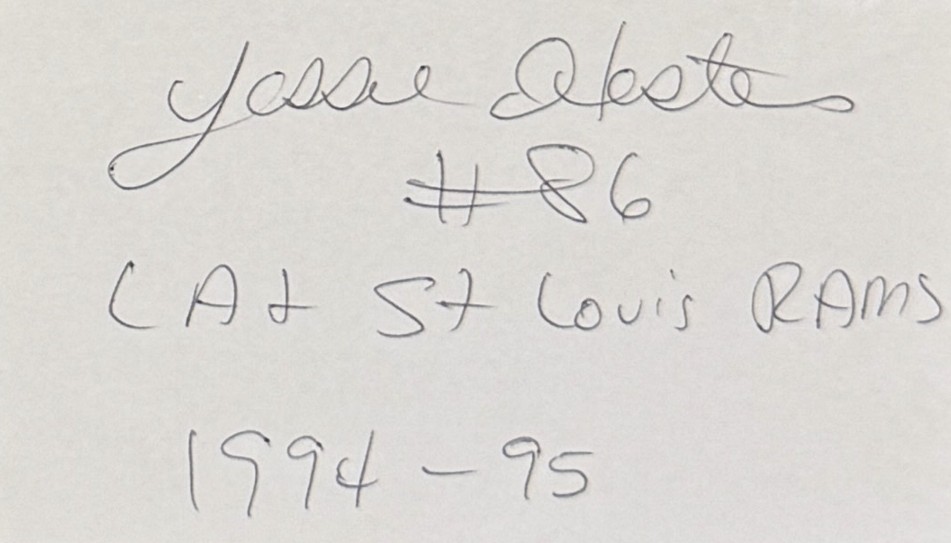 Jessie Hester
#86
LA + St Louis RAMS
1994-95